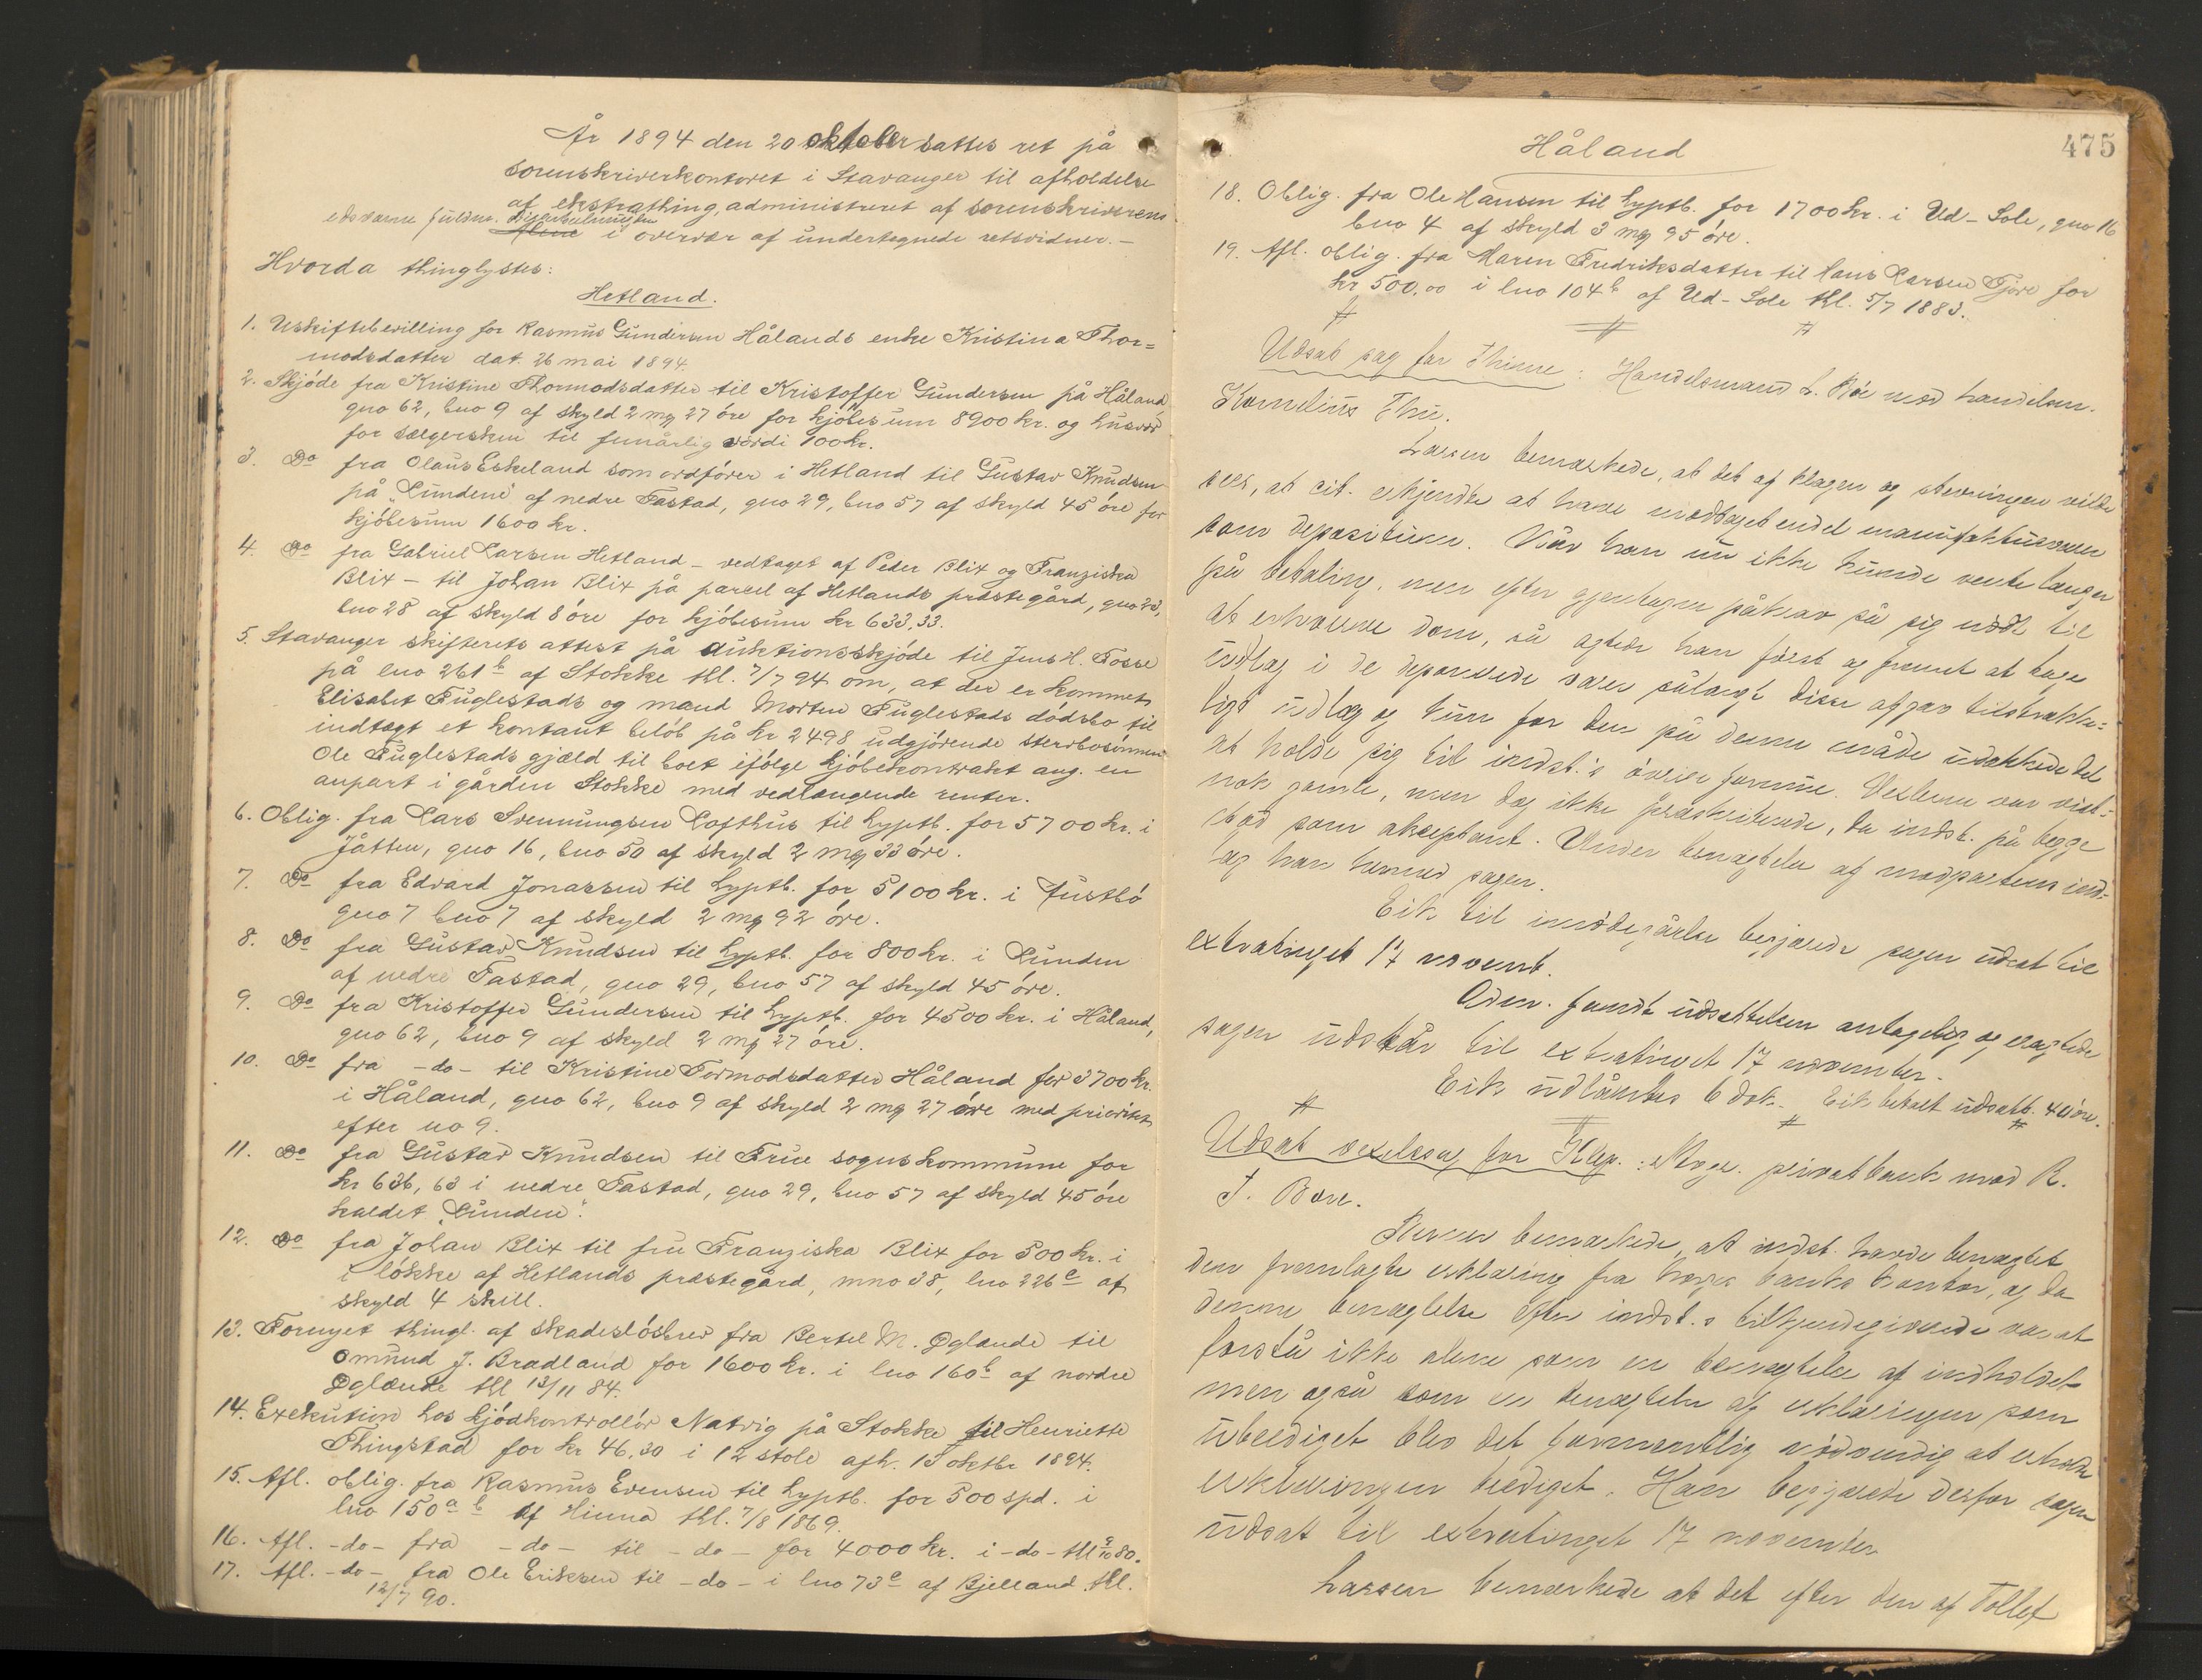 År 1894 den 20 oktober sattes ret på
sorenskriverkontoret i Stavanger til afholdelse
af ekstrathing, administreret af sorenskriverens
edsvorne fuldm.
i overvær af undertegnede retsvidner. –
Hvorda thinglystes:
Hetland.
1. Uskiftebevilling for Rasmus Gundersen Hålands enke Kristina Thor=
modsdatter dat. 26 mai 1894.
2. Skjöde fra Kristine Thormodsdatter til Kristoffer Gundersen på Håland
gno 62, bno 9 af skyld 2 mg 27 öre for kjöbesum 8900 kr. og husvær
for sælgersken til femårlig værdi 100 kr.
3. Do fra Olaus Eskeland som ordförer i Hetland til Gustav Knudsen
på "Lunden" af nedre Tastad, gno 29, bno 57 af skyld 45 öre for
kjöbesum 1600 kr.
4. Do fra Gabriel Larsen Hetland – vedtaget af Peder Blix og Franziska
Blix – til Johan Blix på parcel af Hetlands præstegård, gno 28,
bno 28 af skyld 8 öre for kjöbesum kr 633,33.
5. Stavanger skifterets attest på auktionsskjöde til Jens H. Fosse
på lno 261 b af Stokke thl. 7/7 94 om, at der er kommet
Elisabet Fuglestads og mand Morten Fuglestads dödsbo til
indtægt et kontant belöb på kr 2498 udgjörende stervbosönnen
Ole Fuglestads gjæld til boet ifölge kjöbekontrakt ang. en
anpart i gården Stokke med vedhængende renter.
6. Oblig. fra Lars Svennungsen Lofthus til hyptb. for 5700 kr. i
Jåtten, gno 16, bno 50 af skyld 2 mg 33 öre.
7. Do fra Edvard Jonassen til hyptb. for 5100 kr. i Austbö
gno 7 bno 7 af skyld 2 mg 92 öre.
8. Do fra Gustav Knudsen til hyptb. for 800 kr. i Lunden
af nedre Tastad, gno 29, bno 57 af skyld 45 öre.
9. Do fra Kristoffer Gundersen til hyptb. for 4500 kr. i Håland,
gno 62, bno 9 af skyld 2 mg 27 öre.
10. Do fra – do – til Kristine Tormodsdatter Håland for 3700 kr.
i Håland, gno 62, bno 9 af skyld 2 mg 27 öre med prioritet
efter no 9.
11. Do fra Gustav Knudsen til Frue sognskommune for
kr 636,63 i nedre Tastad, gno 29, bno 57 af skyld 45 öre
kaldet "Lunden".
12. Do fra Johan Blix til fru Franziska Blix for 500 kr. i
i lökke af Hetlands præstegård, mno 38, lno 226 c af
skyld 4 skill.
13. Fornyet thingl. af skadeslösbrev fra Bertel M. Öglænde til
Omund J. Bradland for 1600 kr. i lno 160 b af nordre
Öglænde thl 13/11 84.
14. Exekution hos kjödkontrollör Natvig på Stokke til Henriette
Thingstad for kr 46,30 i 12 stole afh. 15 oktbr 1894.
15. Afl. oblig. fra Rasmus Evensen til hyptb. for 500 spd. i
lno 150 a b af Hinna thl. 7/8 1869.
16. Afl. – do – fra – do – til – do – for 4000 kr. i – do – thl 9/10 80.
17. Afl. – do – fra Ole Eriksen til – do – i lno 73 c af Bjelland thl.
12/7 90.
475
Håland
18. Oblig. fra Ole Hansen til hyptb. for 1700 kr. i Ud-Sole, gno 16
bno 4 af skyld 3 mg 95 öre.
19. Afl. oblig. fra Maren Fredriksdatter til Hans Larsen Tjöre for
kr 500,00 i lno 104 b af Ud-Sole thl. 5/7 1883.
Udsat sag for Thime: Handelsmand L. Röe mod handelsm.
Kornelius Thu.
Lassen bemærkede, at det af klagen og stevningen vilde
sees, at cit. erkjendte at have modtaget endel manufakturvarer
som depositum. Når han nu ikke kunde vente længer
på betaling, men efter gjentagne påkrav så sig nödt til
at erhverve dom, så agter han först og fremst at tage
udlæg i de deponerede varer sålangt disse afgav tilstrække=
ligt udlæg og kun for den på denne måde udækkede del
at holde sig til indst.'s övrige formue. Vexlerne var vist=
nok gamle, men dog ikke præskriberede, da indst. på begge
stod som akseptant. Under benægtelse af modpartens ind=
lag han hermed sagen.
Eik til imödegåelse begjærede sagen udsat til
extratinget 17 novemb.
Adm. fandt udsættelsen antagelig og eragtede
sagen udstår til extratinget 17 november.
Eik udlåntes 6 dok. Eik betalt udsætt. 40 öre.
Udsat vexelsag for Klep: Stvgr. privatbank mod R.
T. Bore.
bemærkede, at indst. havde benægtet
den fremlagte erklæring fra Norges banks kontor, og da
denne benægtelse efter indst.s tilkjendegivende var at
forstå ikke alene som en benægtelse af indholdet
men også som en benægtelse af erklæringen som
ubeediget blev det formentlig nödvendig at erholde
erklæringen beediget. Han begjærede derfor sagen
udsat til extratinget 17 november
Lassen bemærkede at det efter den af Tollef